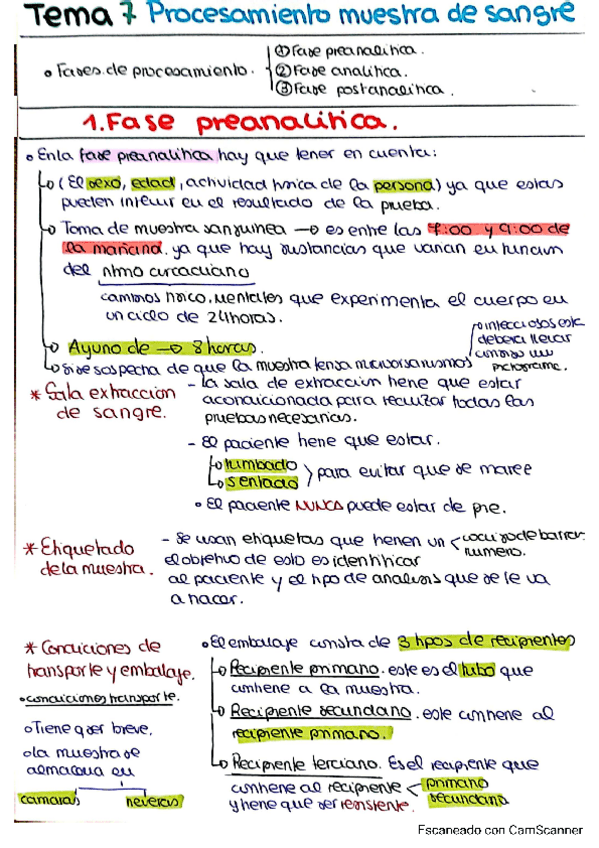 Tema 7 Procesamiento muestra de sangre
• Fases de procesamiento.
① Fase preanalitica.
② Fase analitica.
③ Fase postanalitica.
1. Fase preanalitica.
• En la fase preanalitica hay que tener en cuenta:
(El sexo, edad, actividad fisica de la persona) ya que estas
pueden influir en el resultado de la prueba.
Toma de muestra sanguinea → es entre las 7:00 y 9:00 de
la mañana. ya que hay sustancias que varian en funcion
del ritmo circadiano
cambios fisico, mentales que experimenta el cuerpo en
un ciclo de 24 horas.
Ayuno de → 8 horas.
Si se sospecha de que la muestra tenga microorganismos
infecciosos este
debera llevar
consigo un
pictograma.
* Sala extraccion
de sangre.
- La sala de extraccion tiene que estar
acondicionada para realizar todas las
pruebas necesarias.
- El paciente tiene que estar.
tumbado
sentado
para evitar que se maree
• El paciente NUNCA puede estar de pie.
* Etiquetado
de la muestra.
- Se usan etiquetas que tienen un < codigo de barras
numero.
el objetivo de esto es identificar
al paciente y el tipo de analisis que se le va
a hacer.
* Condiciones de
transporte y embalaje.
• condiciones transporte.
• Tiene q ser breve.
• la muestra se
almacena en
camaras neveras
• El embalaje consta de 3 tipos de recipientes
Recipiente primario. este es el tubo que
contiene a la muestra.
Recipiente secundario. este contiene al
recipiente primario.
Recipiente terciario. Es el recipiente que
contiene al recipiente < primario
secundario
y tiene que ser resistente.
Escaneado con CamScanner